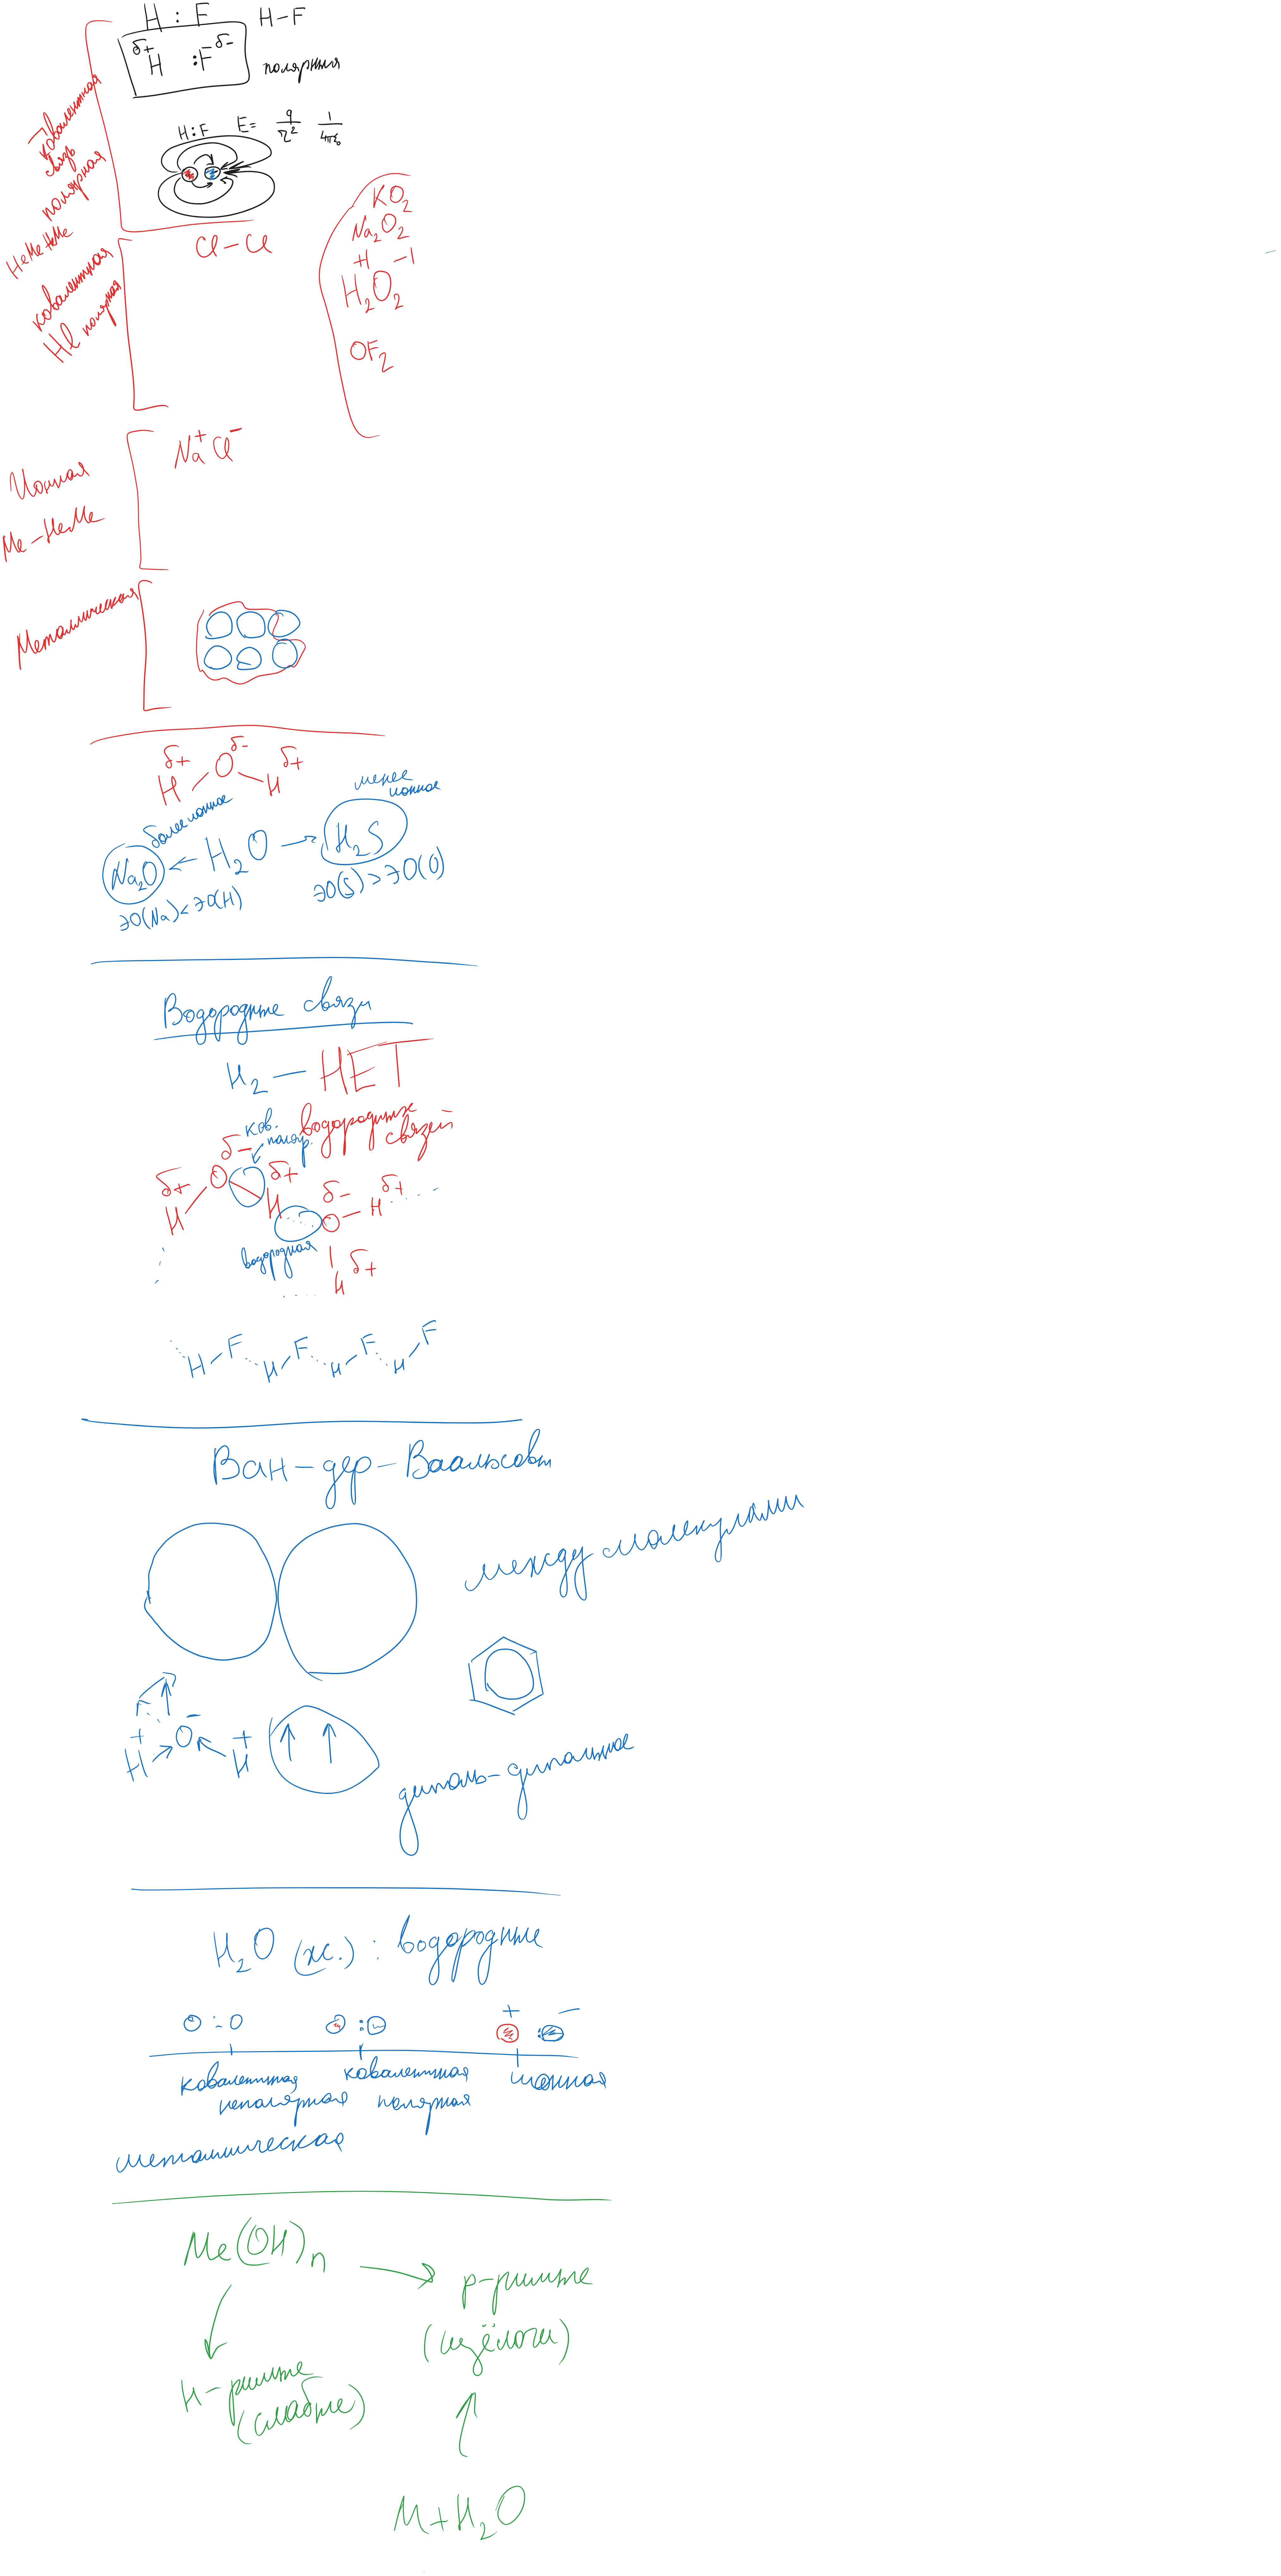 H : F H-F
δ+ H :F δ-
полярная
Ковалентная
связь
полярная
НеМе-НеМе
H:F E= q/r² 1/4πε₀
Cl-Cl
ковалентная
не полярная
KO₂
Na₂O₂
+1 -1
H₂O₂
OF₂
Na⁺Cl⁻
Ионная
Ме-НеМе
Металлическая
δ+ δ- δ+
H O H
более ионное
менее
ионное
Na₂O ← H₂O → H₂S
ЭО(Na)<ЭО(H)
ЭО(S)>ЭО(O)
Водородные связи
H₂ — НЕТ
водородных
связей
ков.
поляр.
δ- δ+
δ+ O
H H δ- δ+
O-H
водородная
H δ+
H-F H-F H-F H-F
Ван-дер-Ваальсовы
между молекулами
+ - +
H O H
диполь-дипольное
H₂O (ж.) : водородные
O : O
+ -
ковалентная
неполярная
ковалентная
полярная
ионная
металлическая
Me(OH)n
р-римые
(щёлочи)
н-римые
(слабые)
M+H₂O